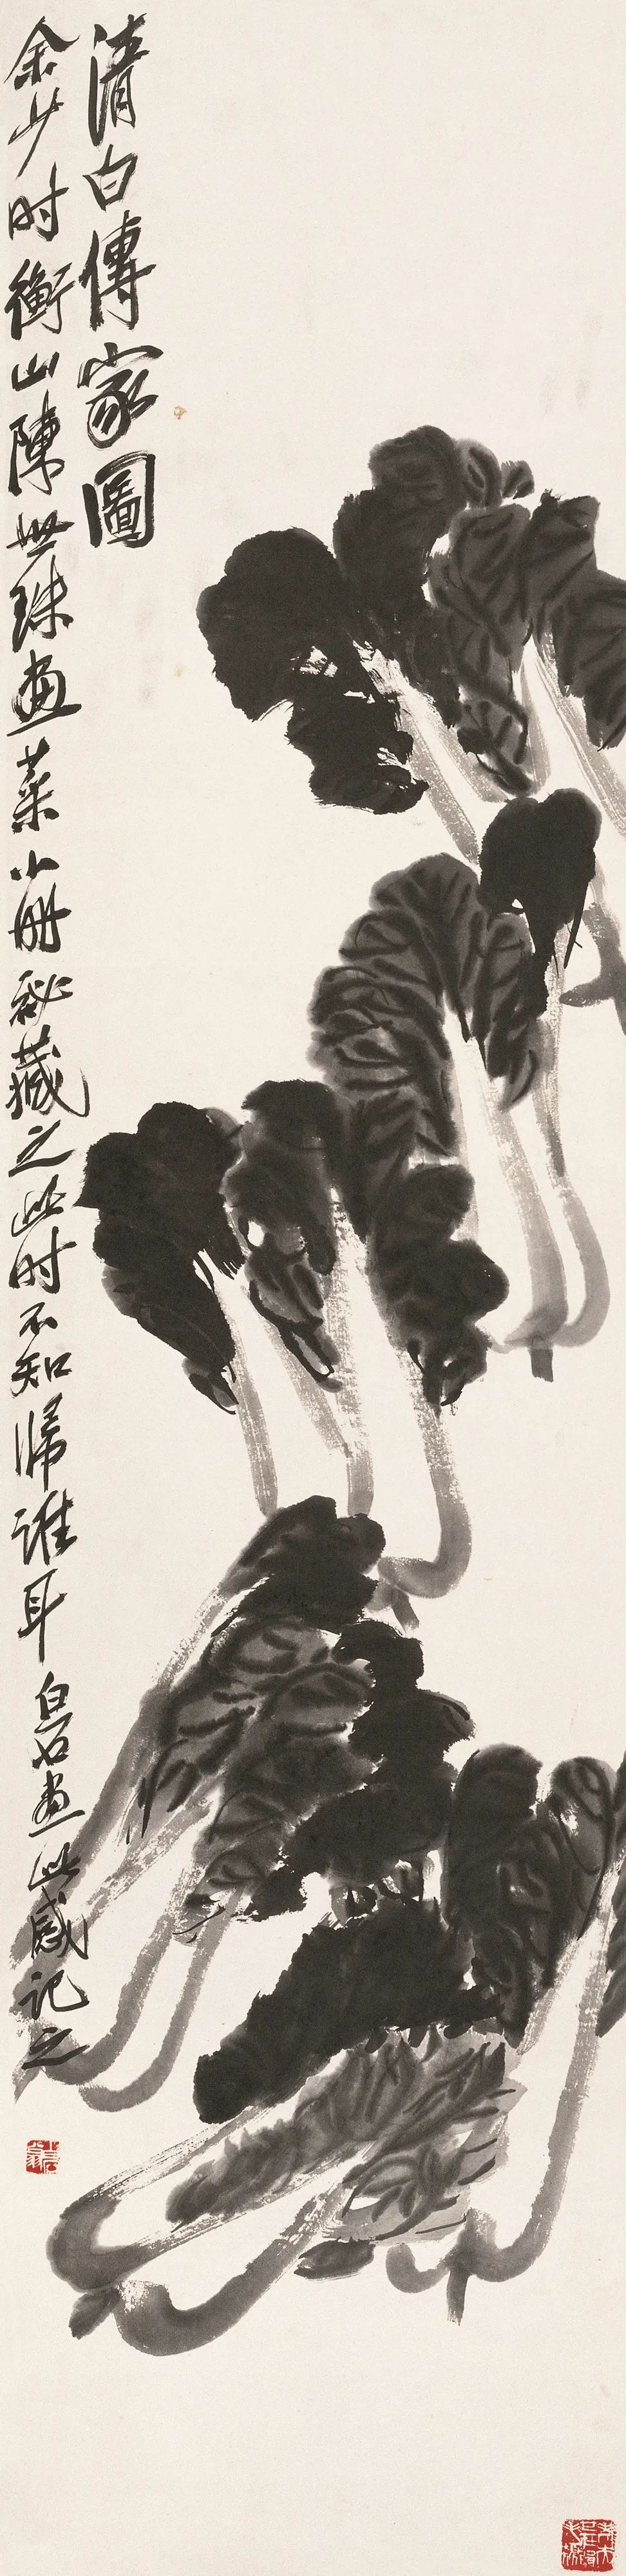 清白傳家圖
余少时衡山陳無珠畫菜小册秘藏之此时不知歸誰耳
白石畫此感記之